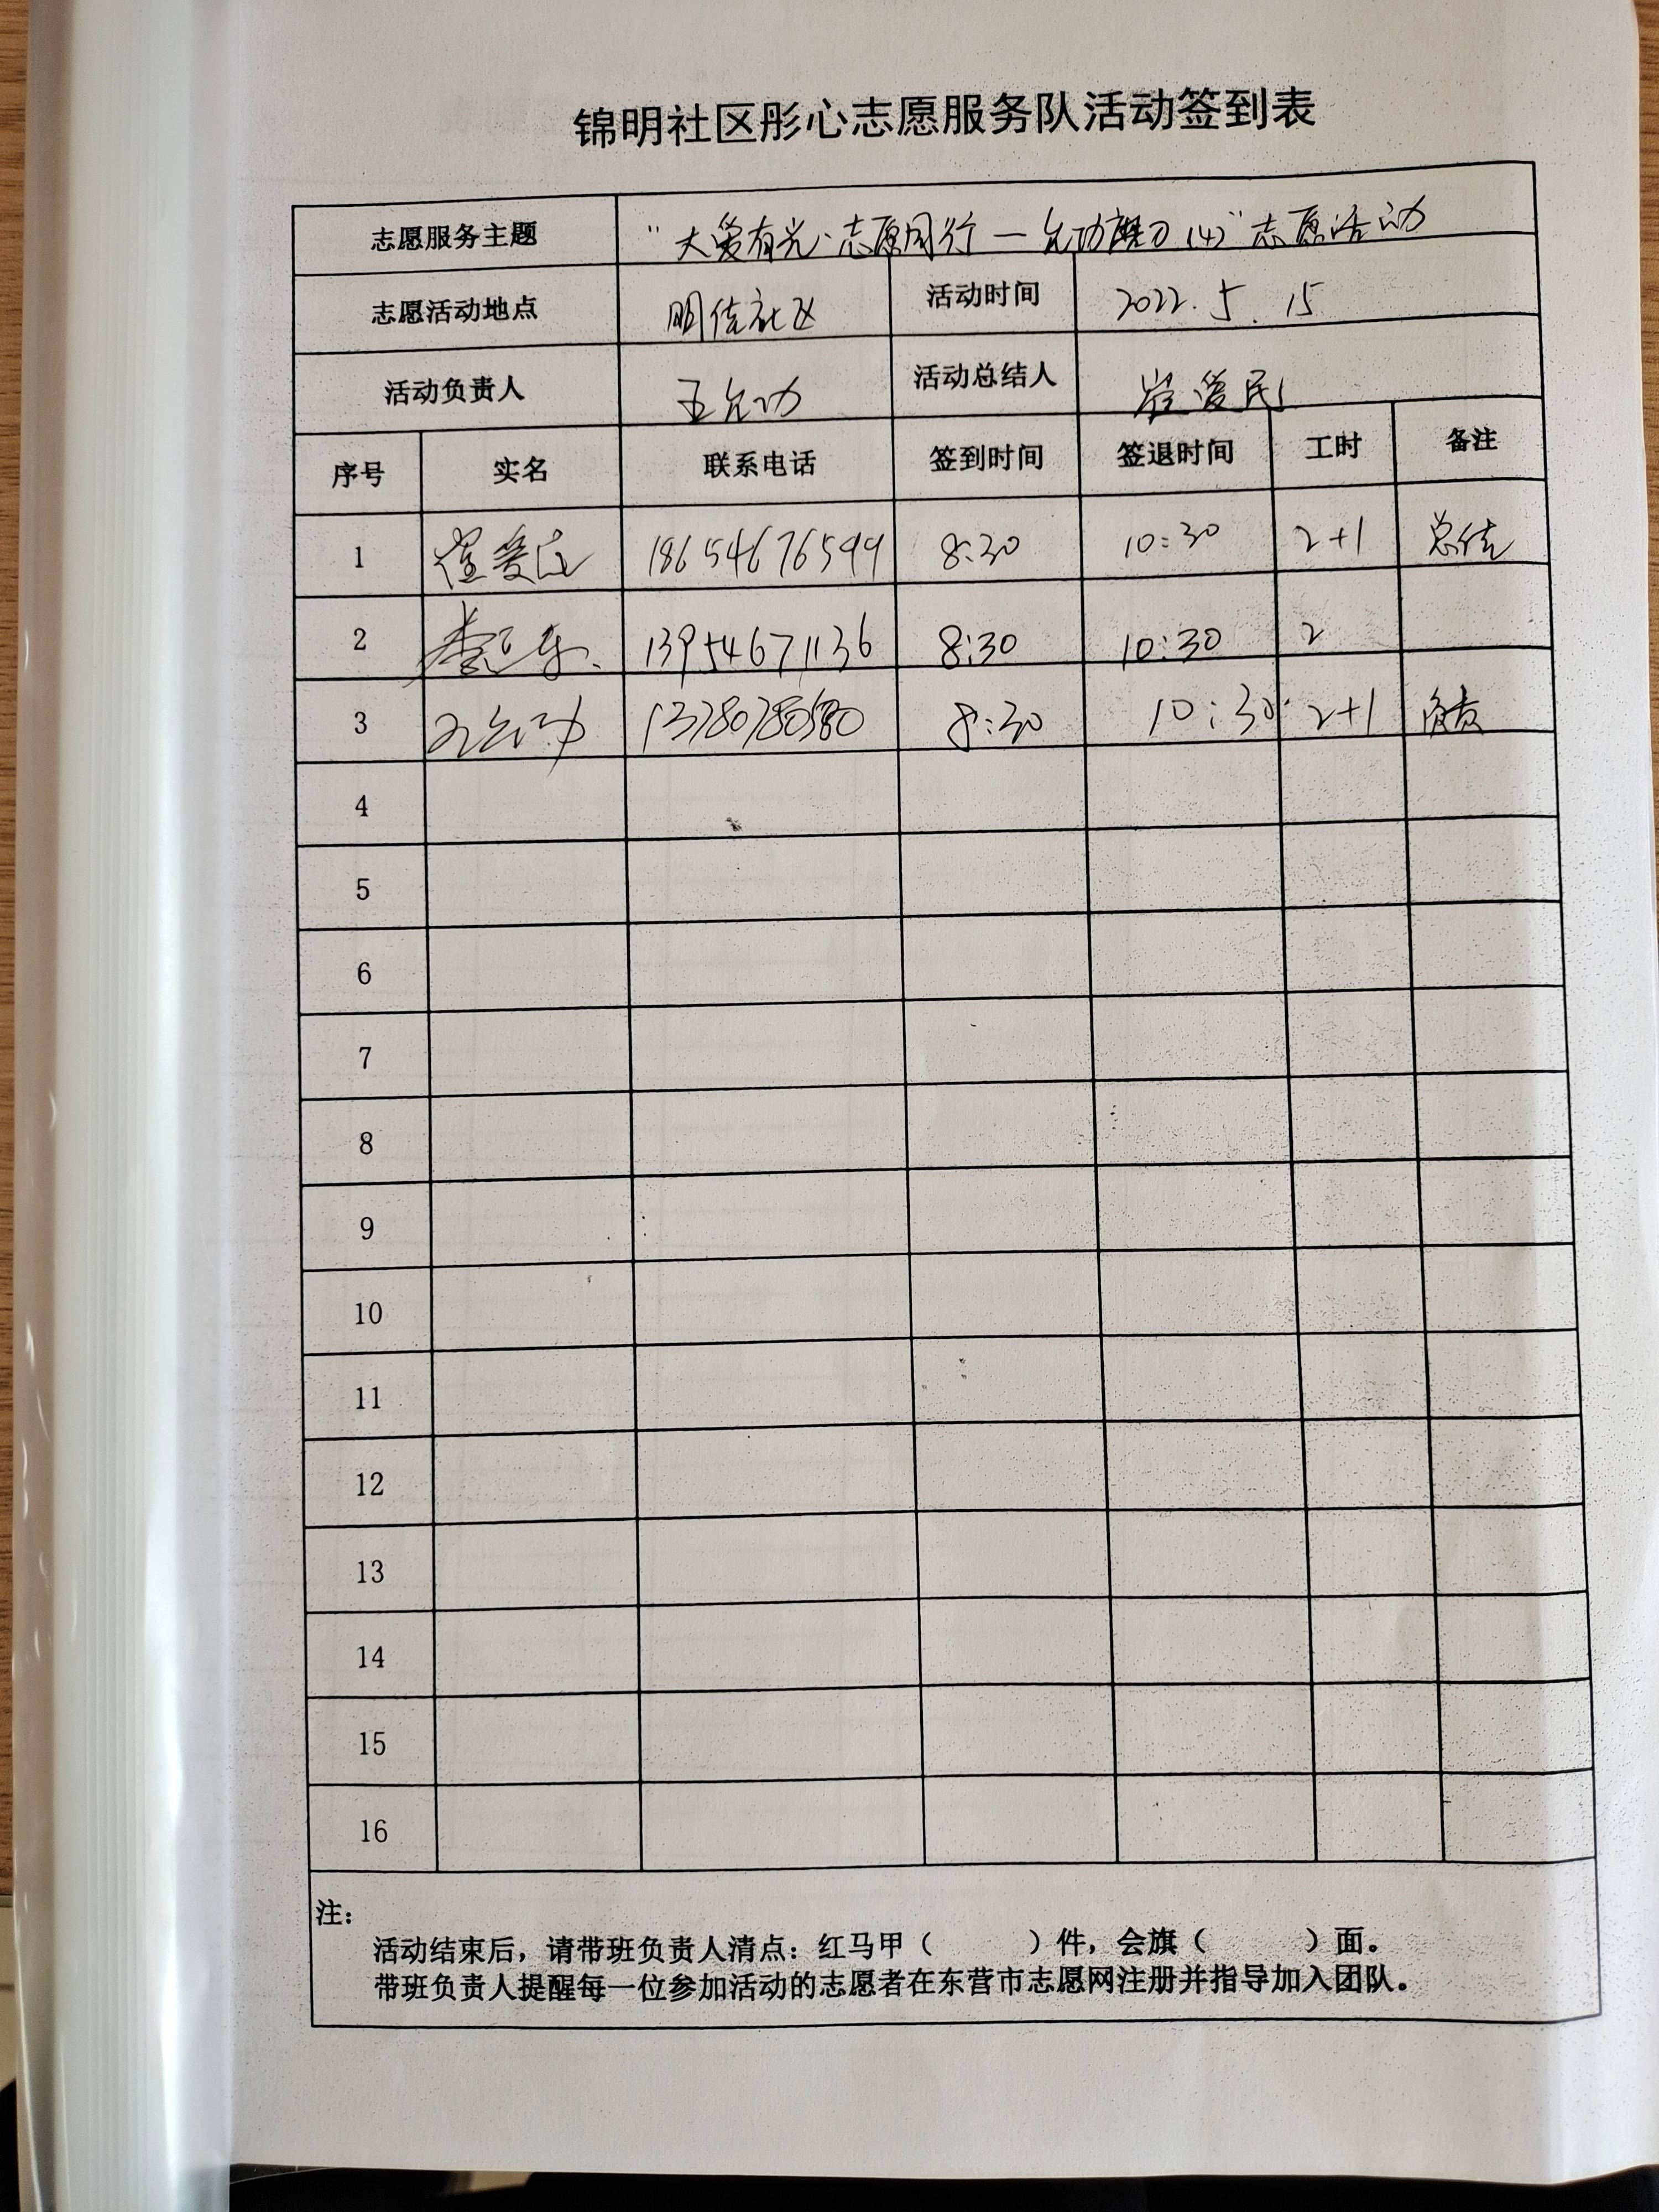 锦明社区彤心志愿服务队活动签到表
志愿服务主题 "大爱有光·志愿同行—允功磨刀(4)"志愿活动
志愿活动地点 明佳社区 活动时间 2022.5.15
活动负责人 王允功 活动总结人 崔爱民
序号 实名 联系电话 签到时间 签退时间 工时 备注
1 崔爱民 18654676599 8:30 10:30 2+1 总结
2 13954671136 8:30 10:30 2
3 王允功 8:30 10:30 2+1
4
5
6
7
8
9
10
11
12
13
14
15
16
注:
活动结束后，请带班负责人清点：红马甲（ ）件，会旗（ ）面。
带班负责人提醒每一位参加活动的志愿者在东营市志愿网注册并指导加入团队。